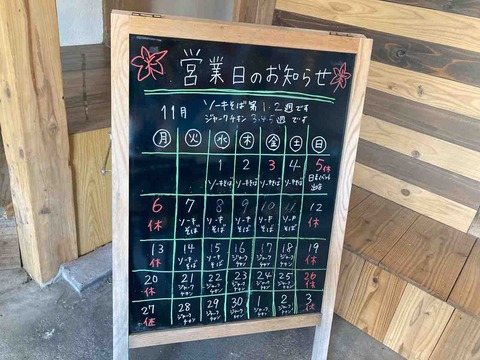 営業日のお知らせ
11月 ソーキそば第1.2週です
ジャークチキン3.4.5週です
月 火 水 木 金 土 日
1 2 3 4 5休
ソーキそば ソーキそば ソーキそば ソーキそば
出店
6 7 8 9 10 11 12
休 ソーキそば ソーキそば ソーキそば ソーキそば ソーキそば 休
13 14 15 16 17 18 19
休 ソーキそば ソーキそば ジャークチキン ジャークチキン ジャークチキン 休
20 21 22 23 24 25 26
休 ジャークチキン ジャークチキン ジャークチキン ジャークチキン ジャークチキン 休
27 28 29 30 1 2 3
休 ジャークチキン ジャークチキン ジャークチキン ジャークチキン ジャークチキン 休